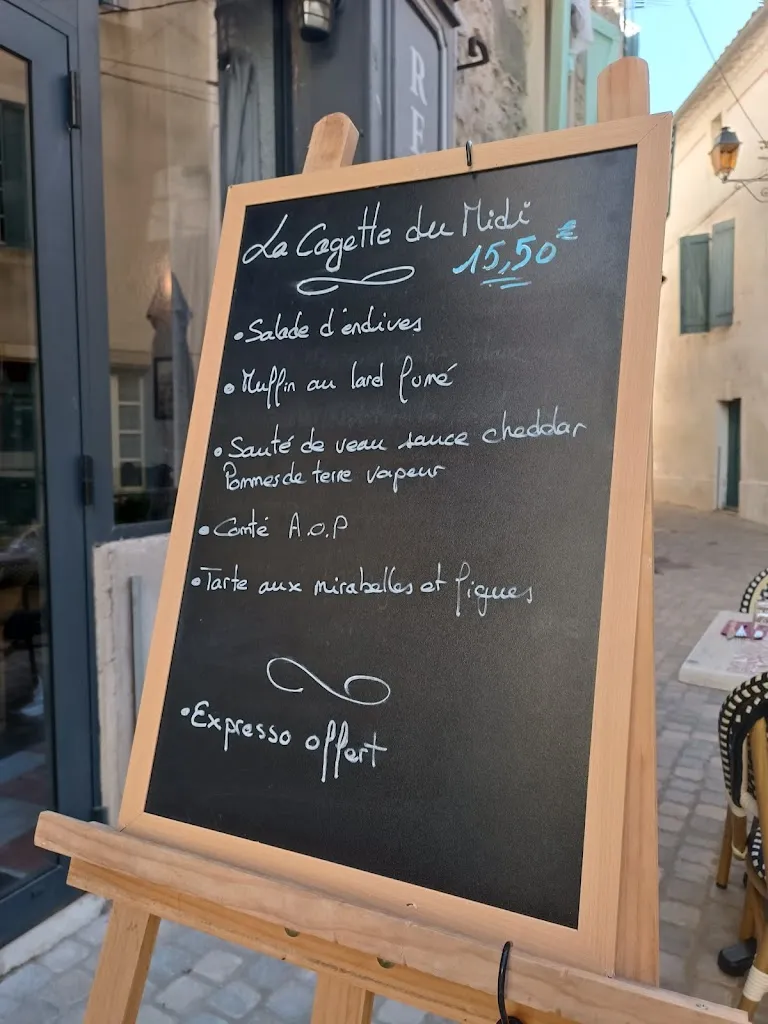 RE
La Cagette du Midi
15,50€
• Salade d'endives
• Muffin au lard fumé
• Sauté de veau sauce cheddar
Pommes de terre vapeur
• Comté A.O.P
• Tarte aux mirabelles et figues
• Expresso offert